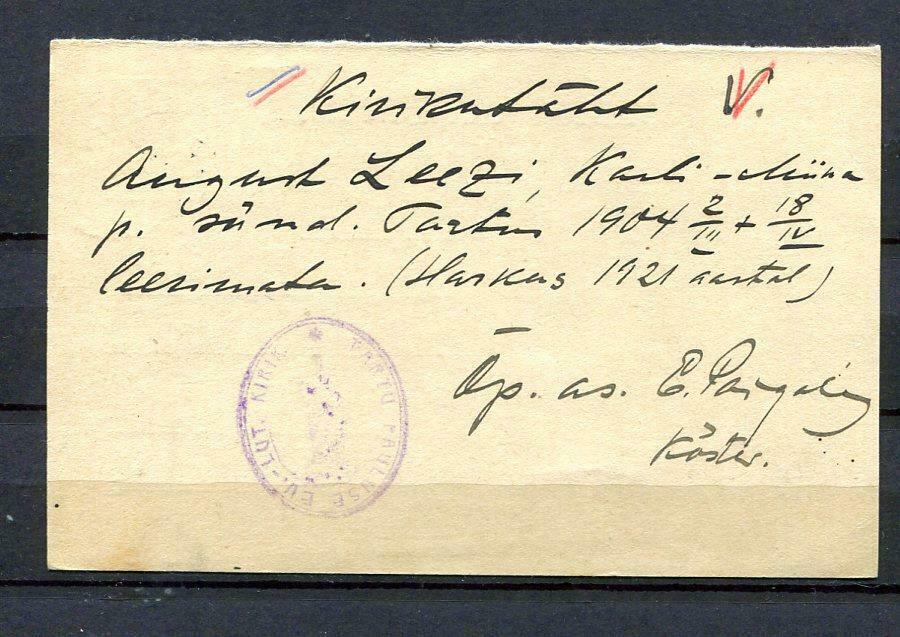 Kirikutäht V.
August Leezi, Karli - Miina
p. sünd. Tartus 1904 2/III + 18/IV
leerimata. (Harkus 1921 aastal)
Õp. as. E.
Köster.
TARTU PAULUSE EV.-LUT. KIRIK